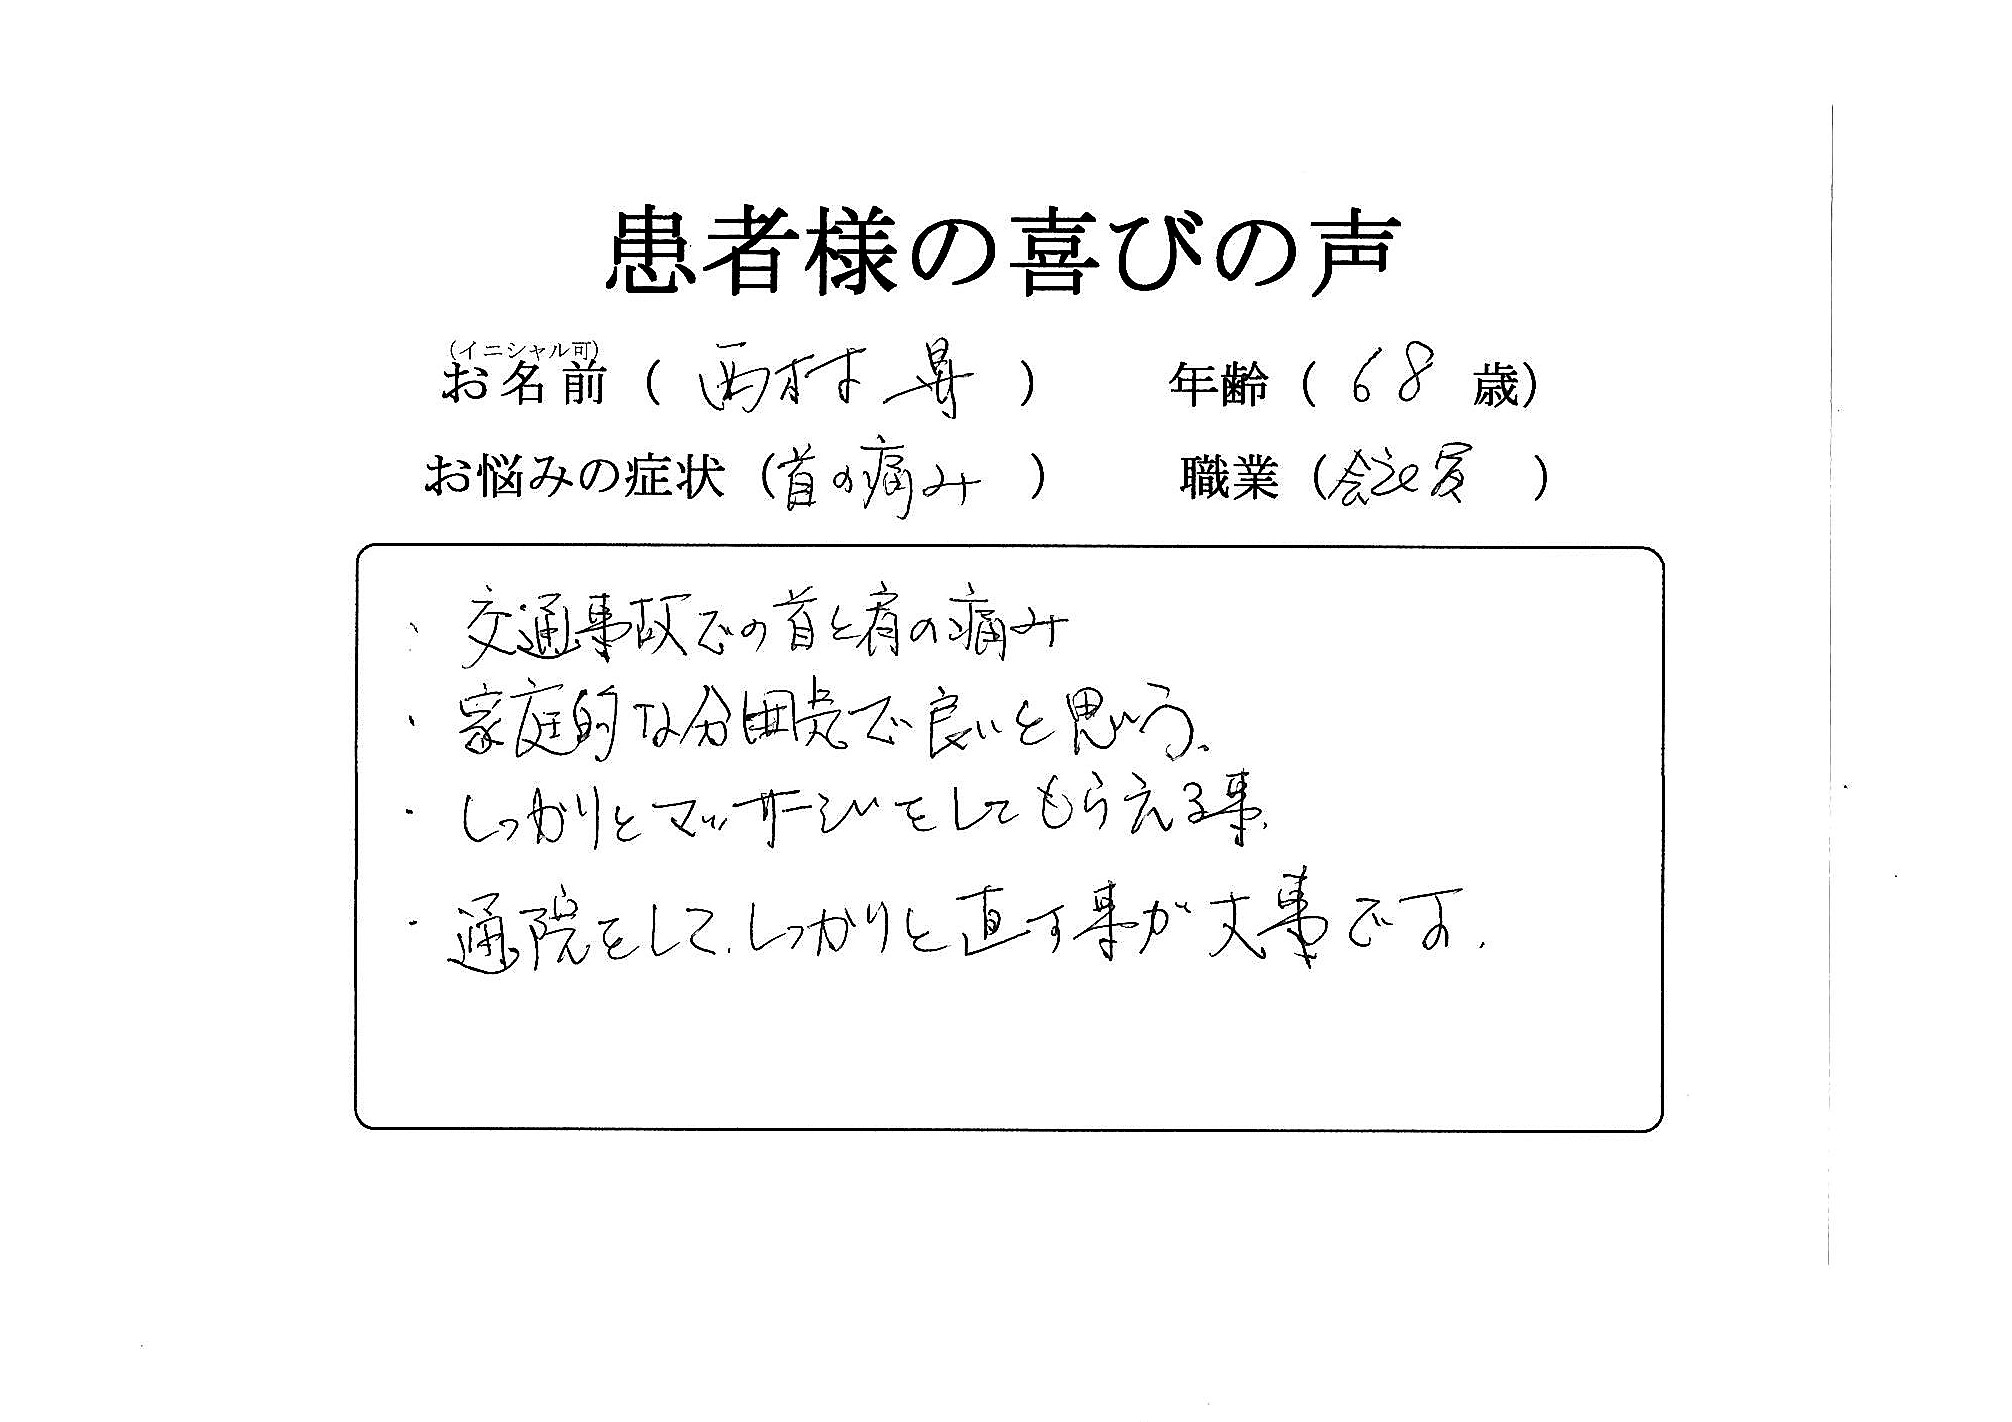 患者様の喜びの声
(イニシャル可)
お名前 ( 西村 昇 ) 年齢 ( 68 歳)
お悩みの症状 (首の痛み ) 職業 (会社員 )
・交通事故での首と肩の痛み
・家庭的な分囲気で良いと思う。
・しっかりとマッサージをしてもらえる事。
・通院をして、しっかりと直す事が大事です。